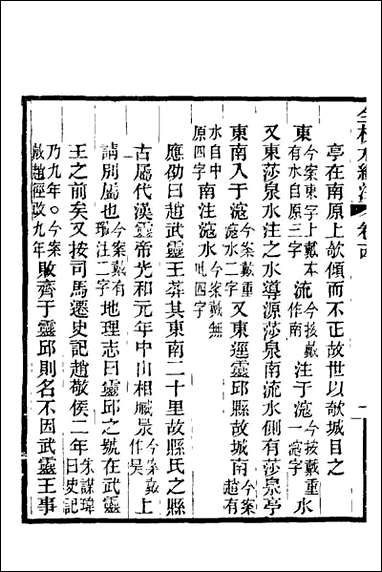 水經注 卷
亭在南原上欹傾而不正故世以欹城目之
東今案東字上戴本有水自原三字流今按戴作南注于滱今按戴重一滱字水
又東莎泉水注之水導源莎泉南流水側有莎泉亭
東南入于滱今案戴重滱水二字又東逕靈邱縣故城南今案趙有
水自中原四字南注滱水今案戴無此四字
應劭曰趙武靈王葬其東南二十里故縣氏之縣
古屬代漢靈帝光和元年中山相臧旻今案戴作昊上
請別屬也今案戴有瓚注二字地理志曰靈邱之號在武靈
王之前矣又按司馬遷史記趙敬侯二年朱謀㙔曰史記
乃九年○今案戴趙經改九年敗齊于靈邱則名不因武靈王事